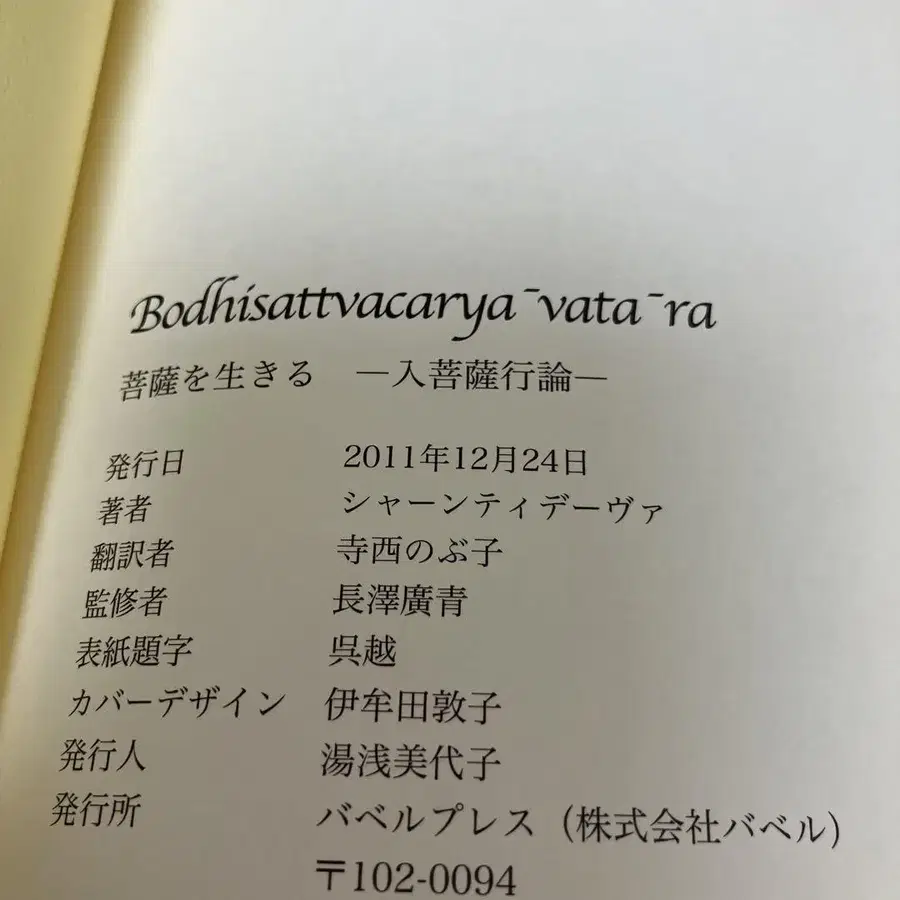 Bodhisattvacarya¯vata¯ra
菩薩を生きる　―入菩薩行論―
発行日　2011年12月24日
著者　シャーンティデーヴァ
翻訳者　寺西のぶ子
監修者　長澤廣青
表紙題字　呉越
カバーデザイン　伊牟田敦子
発行人　湯浅美代子
発行所　バベルプレス（株式会社バベル）
〒102-0094